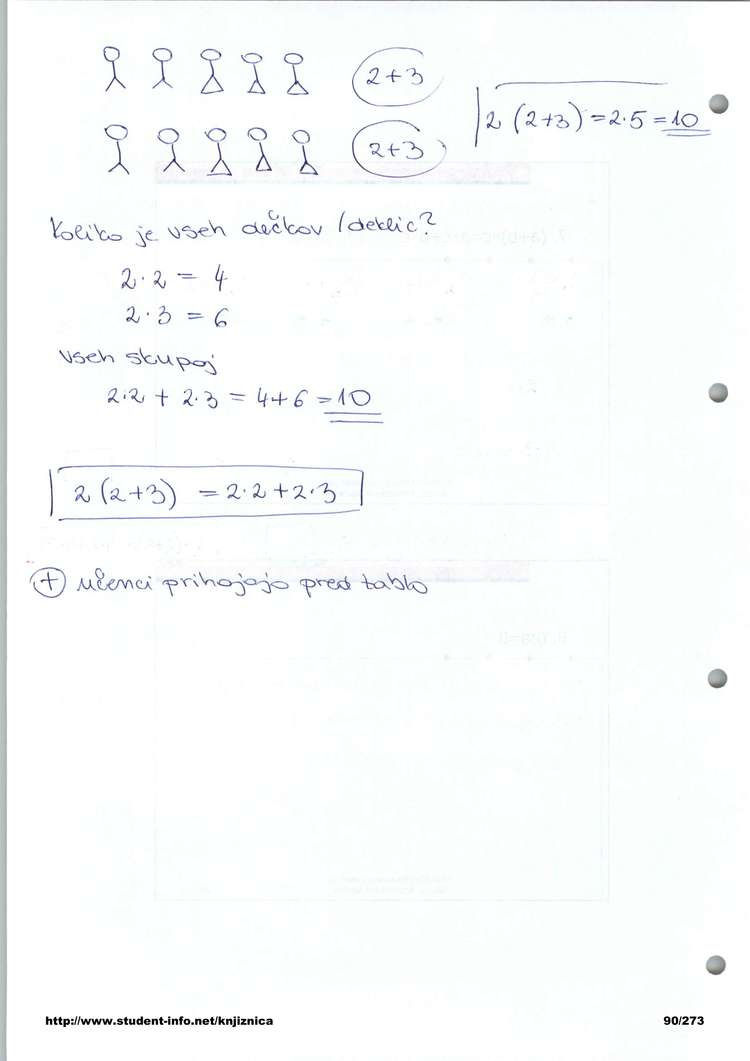 2+3
2 (2+3) = 2·5 = 10
2+3
Koliko je vseh dečkov /deklic?
2·2 = 4
2·3 = 6
vseh skupaj
2·2 + 2·3 = 4+6 = 10
2 (2+3) = 2·2 + 2·3
+ učenci prihajajo pred tablo
http://www.student-info.net/knjiznica 90/273